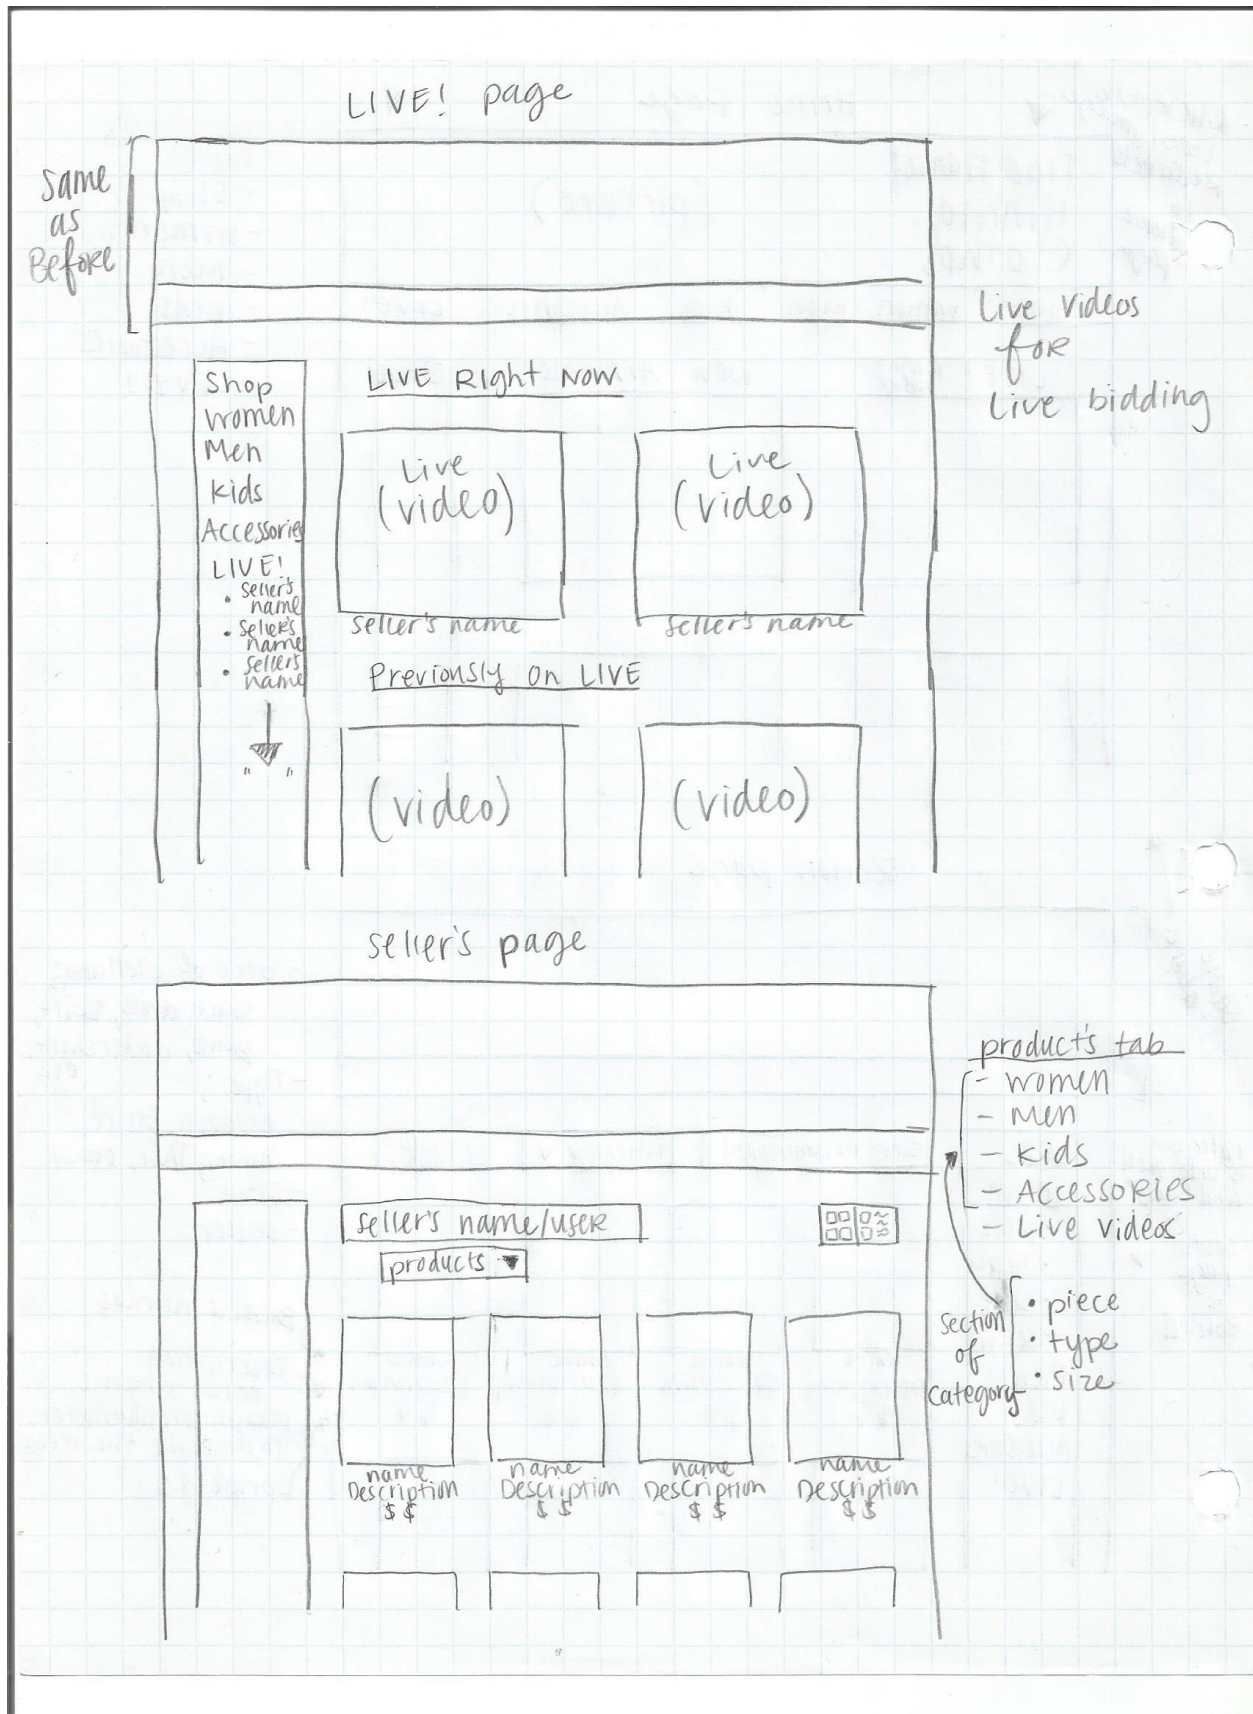 LIVE! page
Same
as
Before
Live videos
for
Live bidding
Shop
women
Men
Kids
Accessories
LIVE!
• seller's
name
• seller's
name
• seller's
name
" "
LIVE Right Now
Live
(video)
Live
(video)
seller's name
seller's name
Previously on LIVE
(video)
(video)
seller's page
product's tab
- women
- men
- kids
- Accessories
- Live videos
section
of
category
• piece
• type
• size
seller's name/user
products ▼
name
Description
$ $
name
Description
$ $
name
Description
$ $
name
Description
$ $